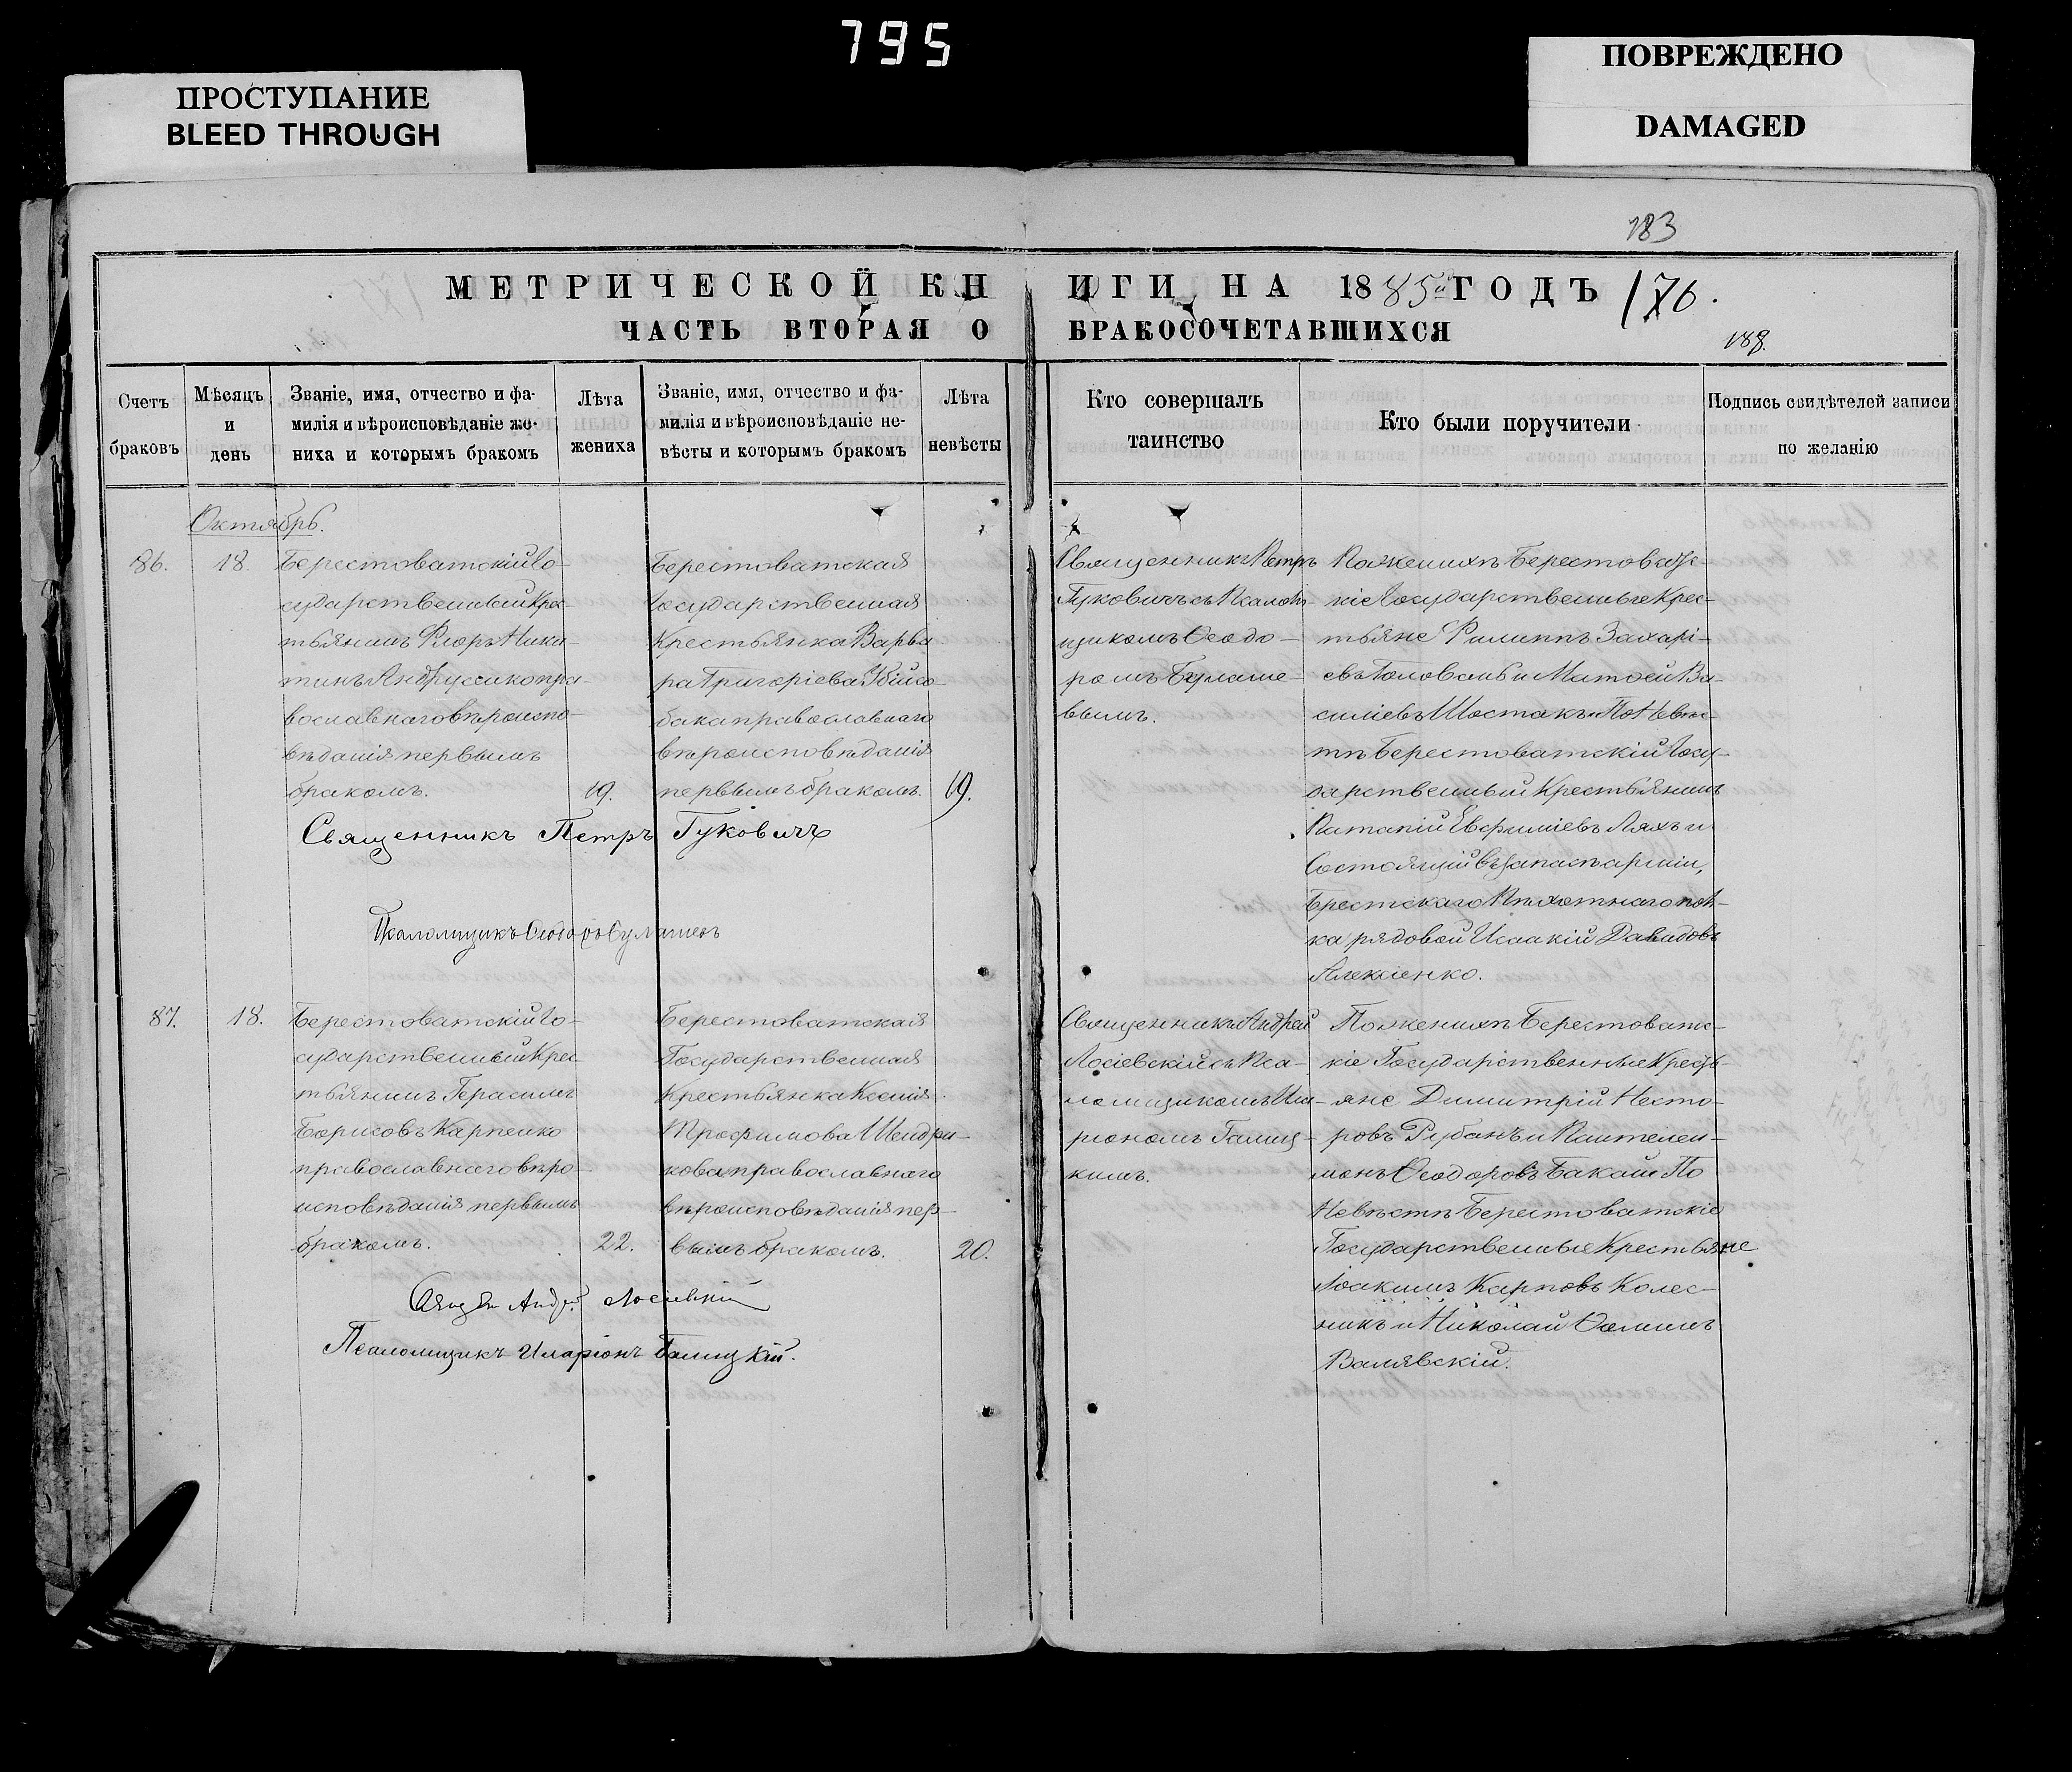 795
ПРОСТУПАНИЕ
BLEED THROUGH
ПОВРЕЖДЕНО
DAMAGED
183
МЕТРИЧЕСКОЙ КНИГИ НА 1885й ГОДЪ 176.
ЧАСТЬ ВТОРАЯ О БРАКОСОЧЕТАВШИХСЯ
188.
Счетъ
браковъ
Мѣсяцъ
и
день
Званіе, имя, отчество и фа-
милія и вѣроисповѣданіе же-
ниха и которымъ бракомъ
Лѣта
жениха
Званіе, имя, отчество и фа-
милія и вѣроисповѣданіе не-
вѣсты и которымъ бракомъ
Лѣта
невѣсты
Кто совершалъ
таинство
Кто были поручители
Подпись свидѣтелей записи
по желанію
Октябрь.
86.
18.
Берестоватскій Го-
сударственный Крес-
тьянинъ Флоръ Ники-
тинъ Андрусенко пра-
вославнаго вѣроиспо-
вѣданія первымъ
бракомъ.
19.
Берестоватская
Государственная
Крестьянка Варва-
ра Григоріева Убійсо-
бака православнаго
вѣроисповѣданія
первымъ бракомъ.
19.
Священникъ Петръ
Гуковичъ съ Псалом-
щикомъ Ѳеодо-
ромъ
вымъ.
По женихѣ Берестоватс-
кіе Государственные Крес-
тьяне Филиппъ Захарі-
евъ Головань и Матѳей Ва-
силіевъ Шостакъ По Невѣс-
тѣ Берестоватскій Госу-
дарственный Крестьянинъ
Потапій Евфиміевъ Ляхъ и
Состоящій въ запасѣ арміи,
Брестскаго Пѣхотнаго пол-
ка рядовой Исаакій Давидовъ
Алексіенко.
Священникъ Петръ Гуковичъ
Псаломщикъ Ѳеодоръ
87.
18.
Берестоватскій Го-
сударственный Крес-
тьянинъ Герасимъ
Борисовъ Карпенко
православнаго вѣро-
исповѣданія первымъ
бракомъ.
22.
Берестоватская
Государственная
Крестьянка Ксенія
Трофимова Шендри-
кова православнаго
вѣроисповѣданія пер-
вымъ бракомъ.
20.
Священникъ Андрей
Лосіевскій съ Пса-
ломщикомъ Ила-
ріономъ Галиц-
кимъ.
По женихѣ Берестоватс-
кіе Государственные Кресть-
яне Димитрій Несто-
ровъ Рубанъ и Пантелеи-
монъ Ѳеодоровъ Бакай По
Невѣстѣ Берестоватскіе
Государственные Крестьяне
Іоакимъ Карповъ Колес-
никъ и Николай Ѳоминъ
Валявскій.
Андрей Лосіевскій
Псаломщикъ Иларіонъ Галицкій.